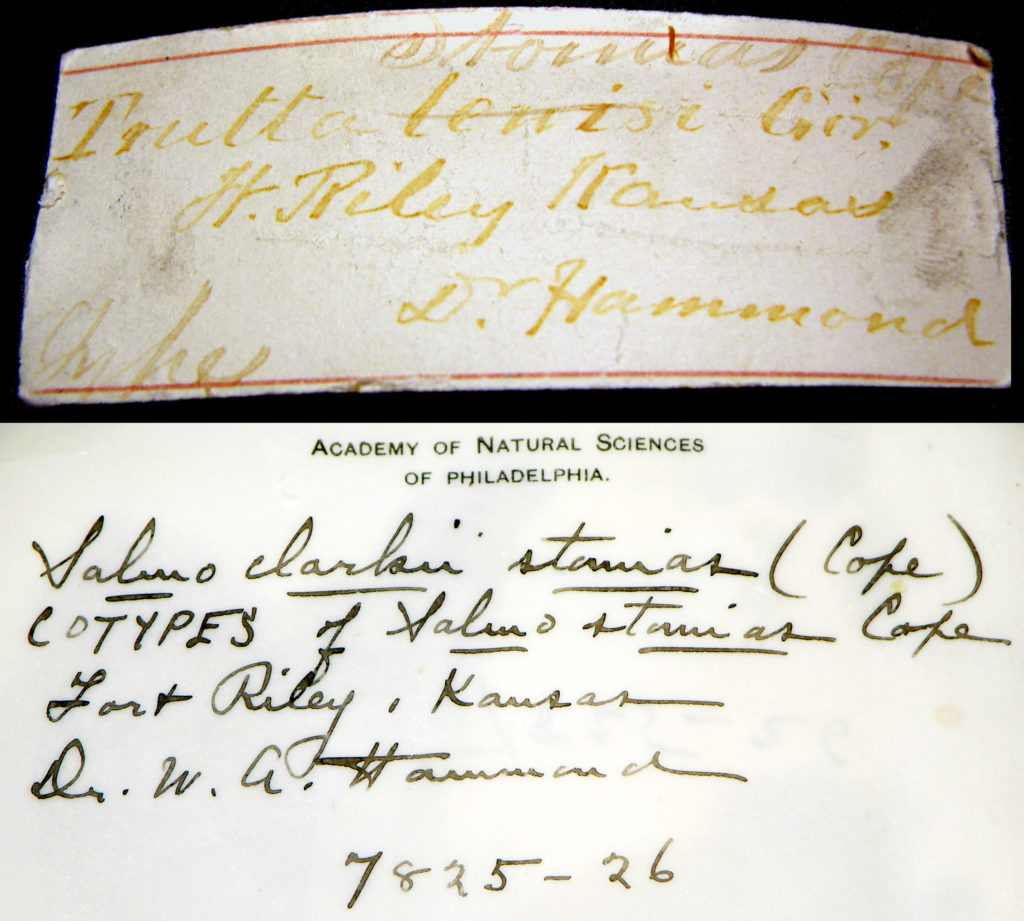 Stomias Cope
Trutta lewisi Gir.
Ft. Riley Kansas
Dr. Hammond
Types
ACADEMY OF NATURAL SCIENCES
OF PHILADELPHIA.
Salmo clarkii stomias (Cope)
COTYPES of Salmo stomias Cope
Fort Riley, Kansas
Dr. W. A. Hammond
7825-26